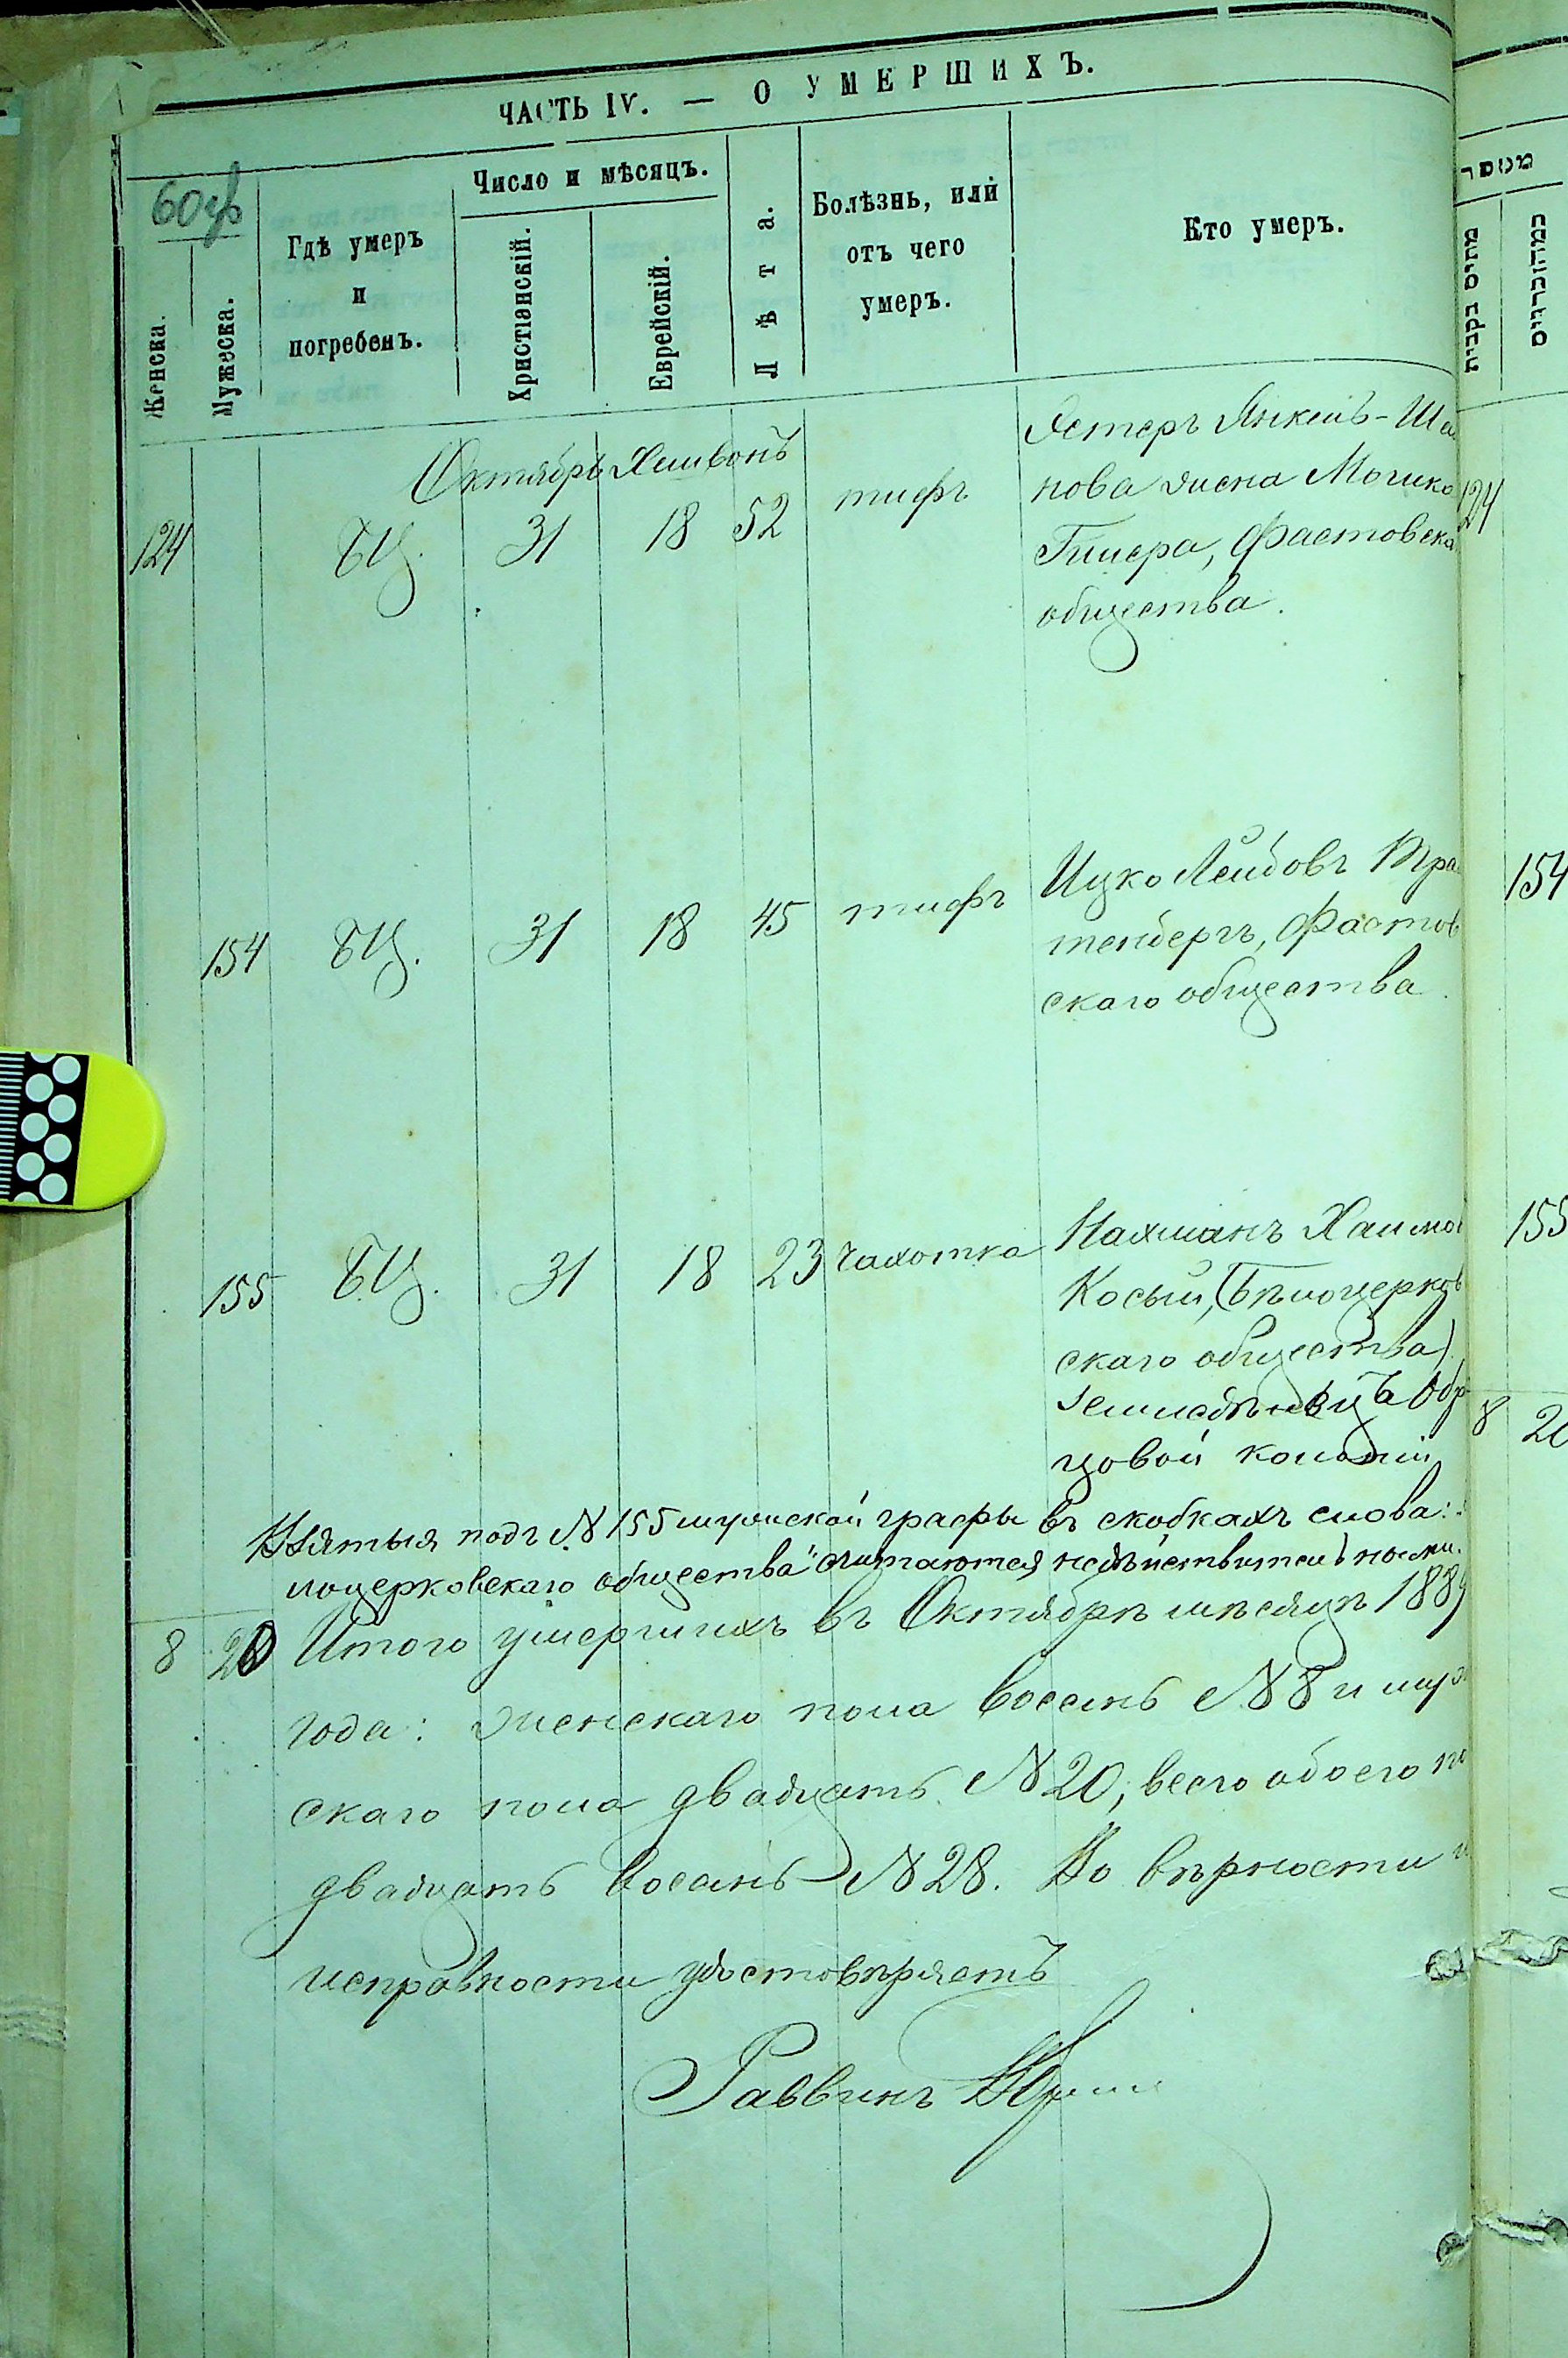 ЧАСТЬ IV. — О УМЕРШИХЪ.
60об
Женска.
Мужеска.
Гдѣ умеръ
и
погребенъ.
Число и мѣсяцъ.
Христіанскій.
Еврейскій.
Лѣта.
Болѣзнь, или
отъ чего
умеръ.
Кто умеръ.
Октябрь Хешвонъ
124 БЦ. 31 18 52 тифъ Эстеръ Янкель-Ша
нова жена Мошко
Гиллера, Фастовска
общества.
154 БЦ. 31 18 45 тифъ Ицко Лейбовъ Тра
тенбергъ, Фастов
скаго общества.
155 БЦ. 31 18 23 Чахотка Нахманъ Хаимов
Косый, (Бѣлоцерков
скаго общества)
Земледѣлецъ Обр
цовой колоніи
Взятыя подъ № 155 мужской графы въ скобкахъ слова:
лоцерковскаго общества" считаются недѣйствительными.
8 20 Итого умершихъ въ Октябрѣ мѣсяцѣ 1889
года: женскаго пола восемь № 8 и муж
скаго пола двадцать № 20, всего обоего по
двадцать восемь № 28. Во вѣрности и
исправности удостовѣряетъ
Раввинъ
מספר
124
154
155
8 20